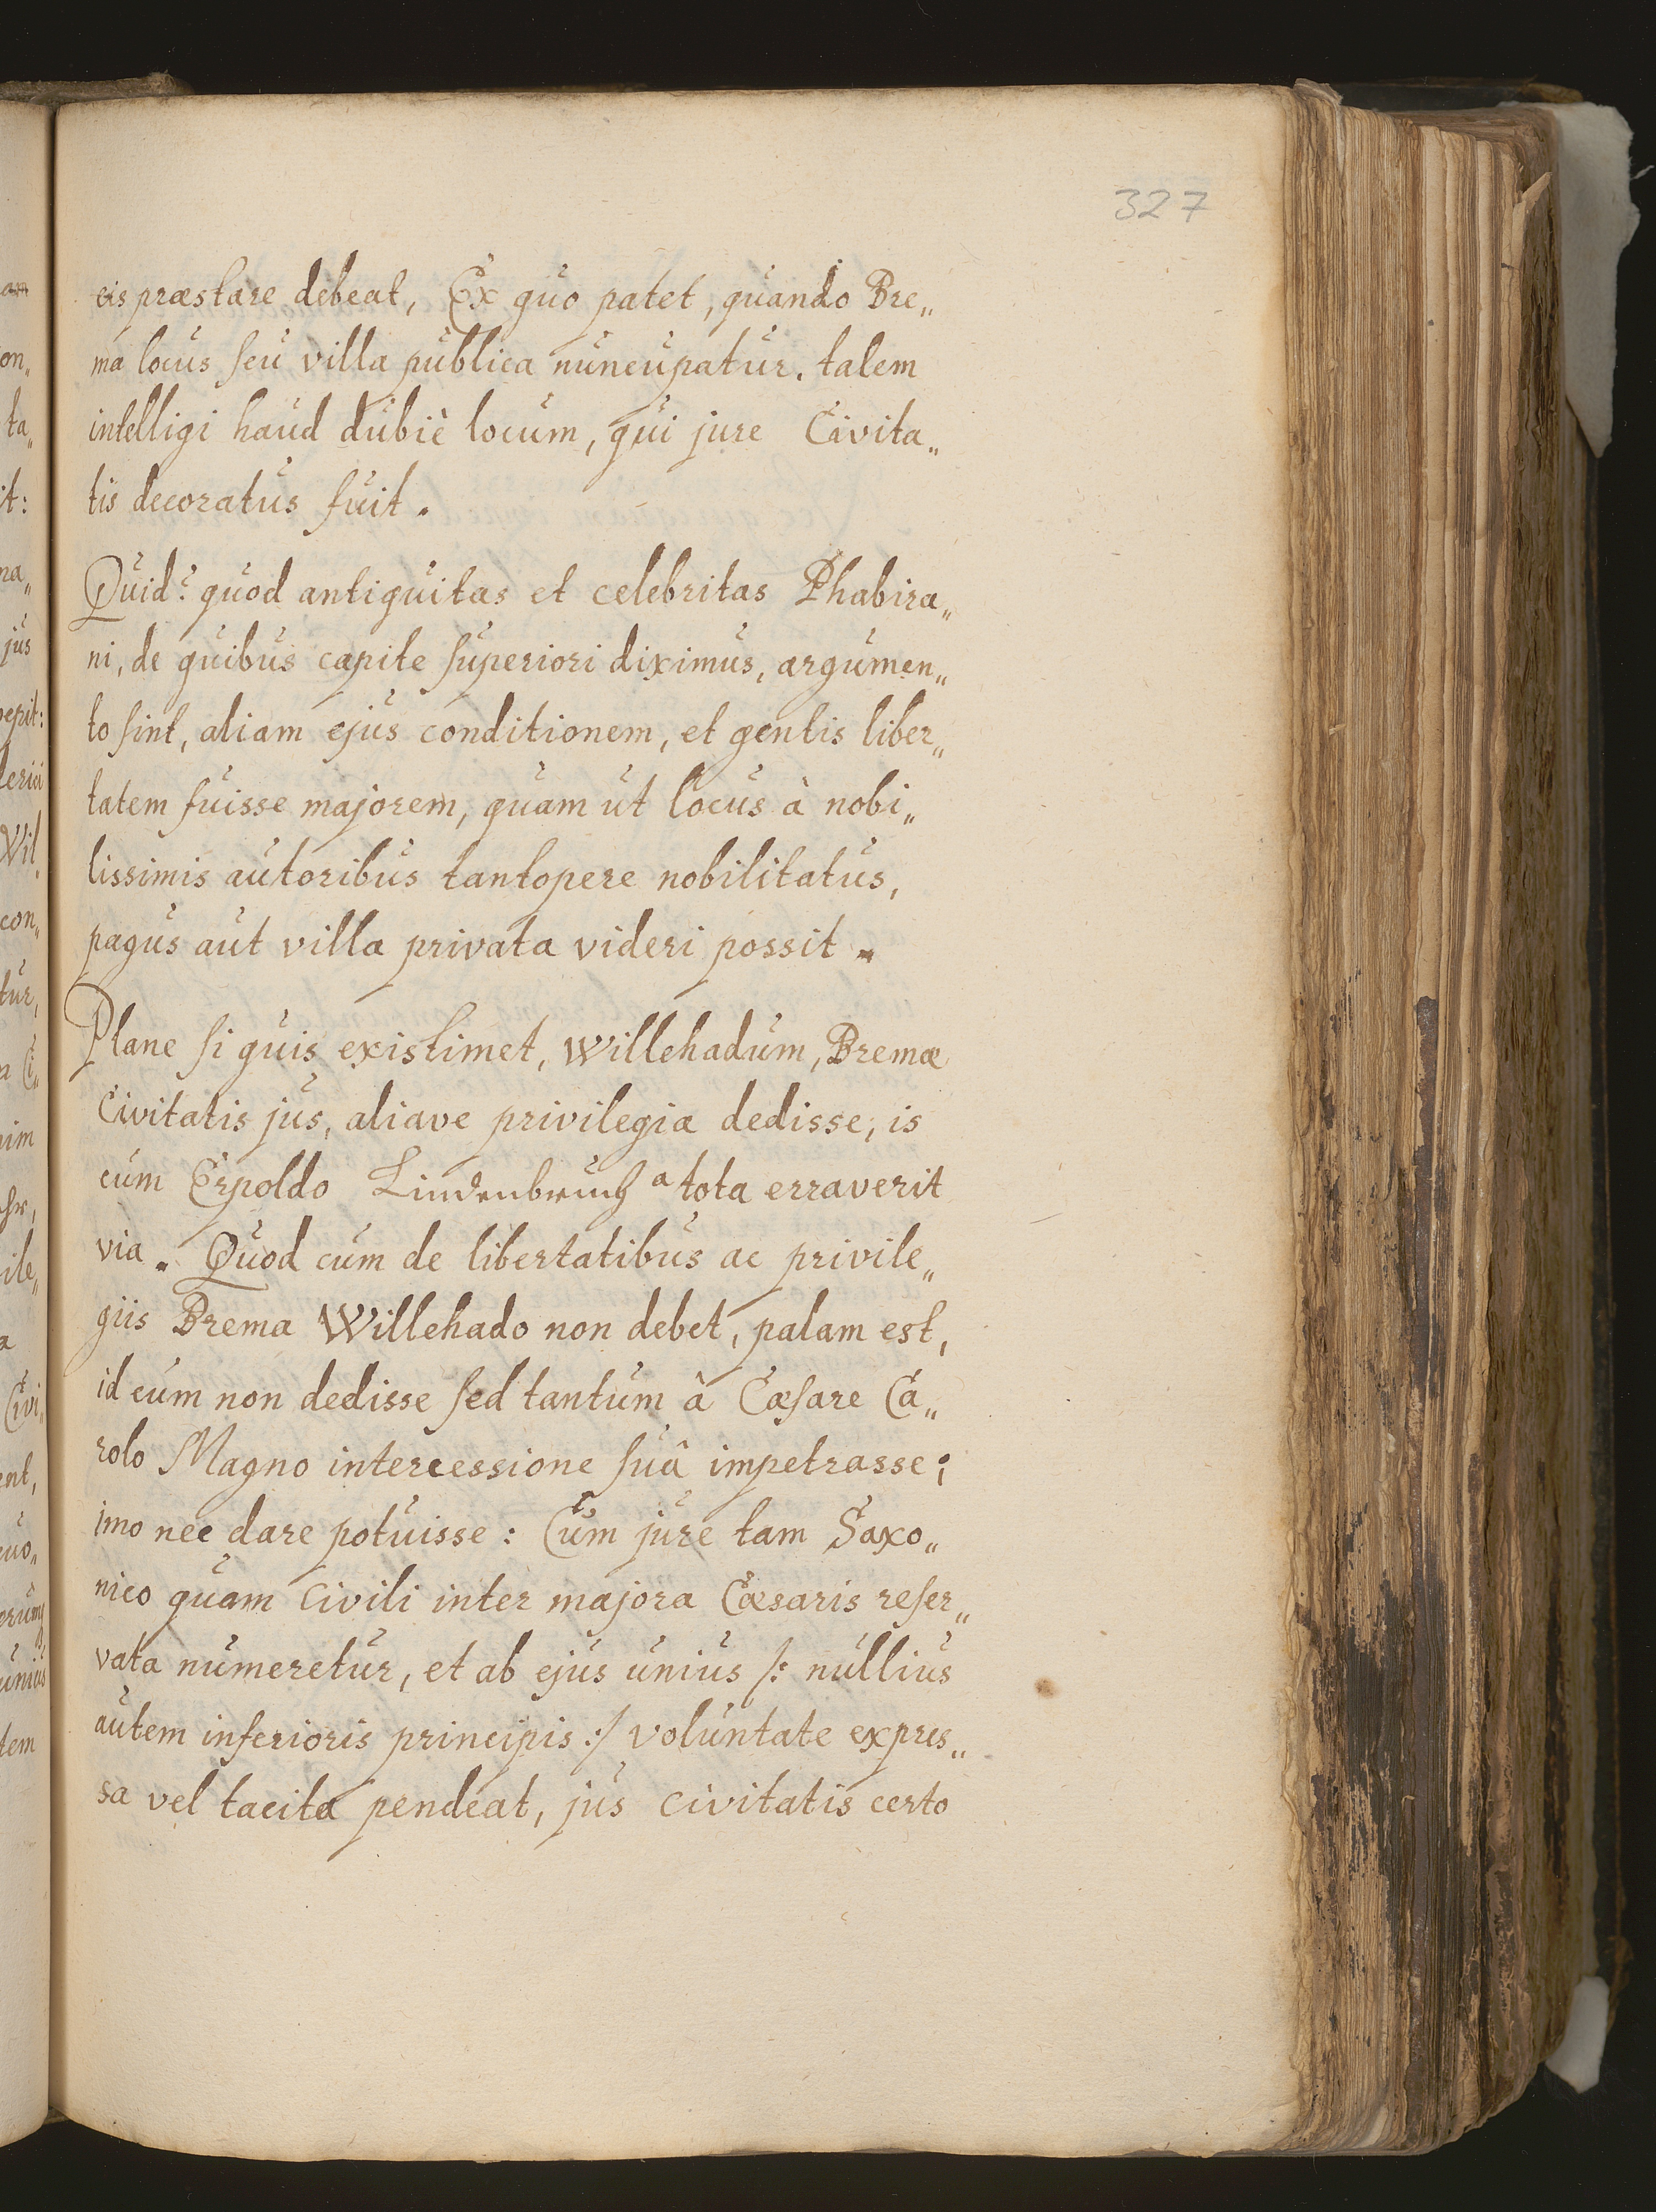 327
eis præstare debeat, Ex quo patet, quando Bre„
ma locus seu villa publica nuncupatur. talem
intelligi haud dubiè locum, qui jure Civita„
tis decoratus fuit.
Quid? quod antiquitas et celebritas Phabira„
ni, de quibus capite superiori diximus, argumen„
to sint, aliam ejus conditionem, et gentis liber„
tatem fuisse majorem, quam ut locus à nobi„
lissimis autoribus tantopere nobilitatus,
pagus aut villa privata videri possit.
Plane si quis existimet, Willehadum, Bremæ
Civitatis jus, aliave privilegia dedisse, is
cum Erpoldo Lindenbruch a tota erraverit
via. Quod cum de libertatibus ac privile„
giis Brema Willehado non debet, palam est,
id eum non dedisse sed tantum â Cæsare Ca„
rolo Magno intercessione suâ impetrasse;
imo nec dare potuisse: Cum jure tam Saxo„
nico quam Civili inter majora Cæsaris reser„
vata numeretur, et ab ejus unius /: nullius
autem inferioris principis :/ voluntate expres„
sa vel tacita pendeat, jus civitatis certo